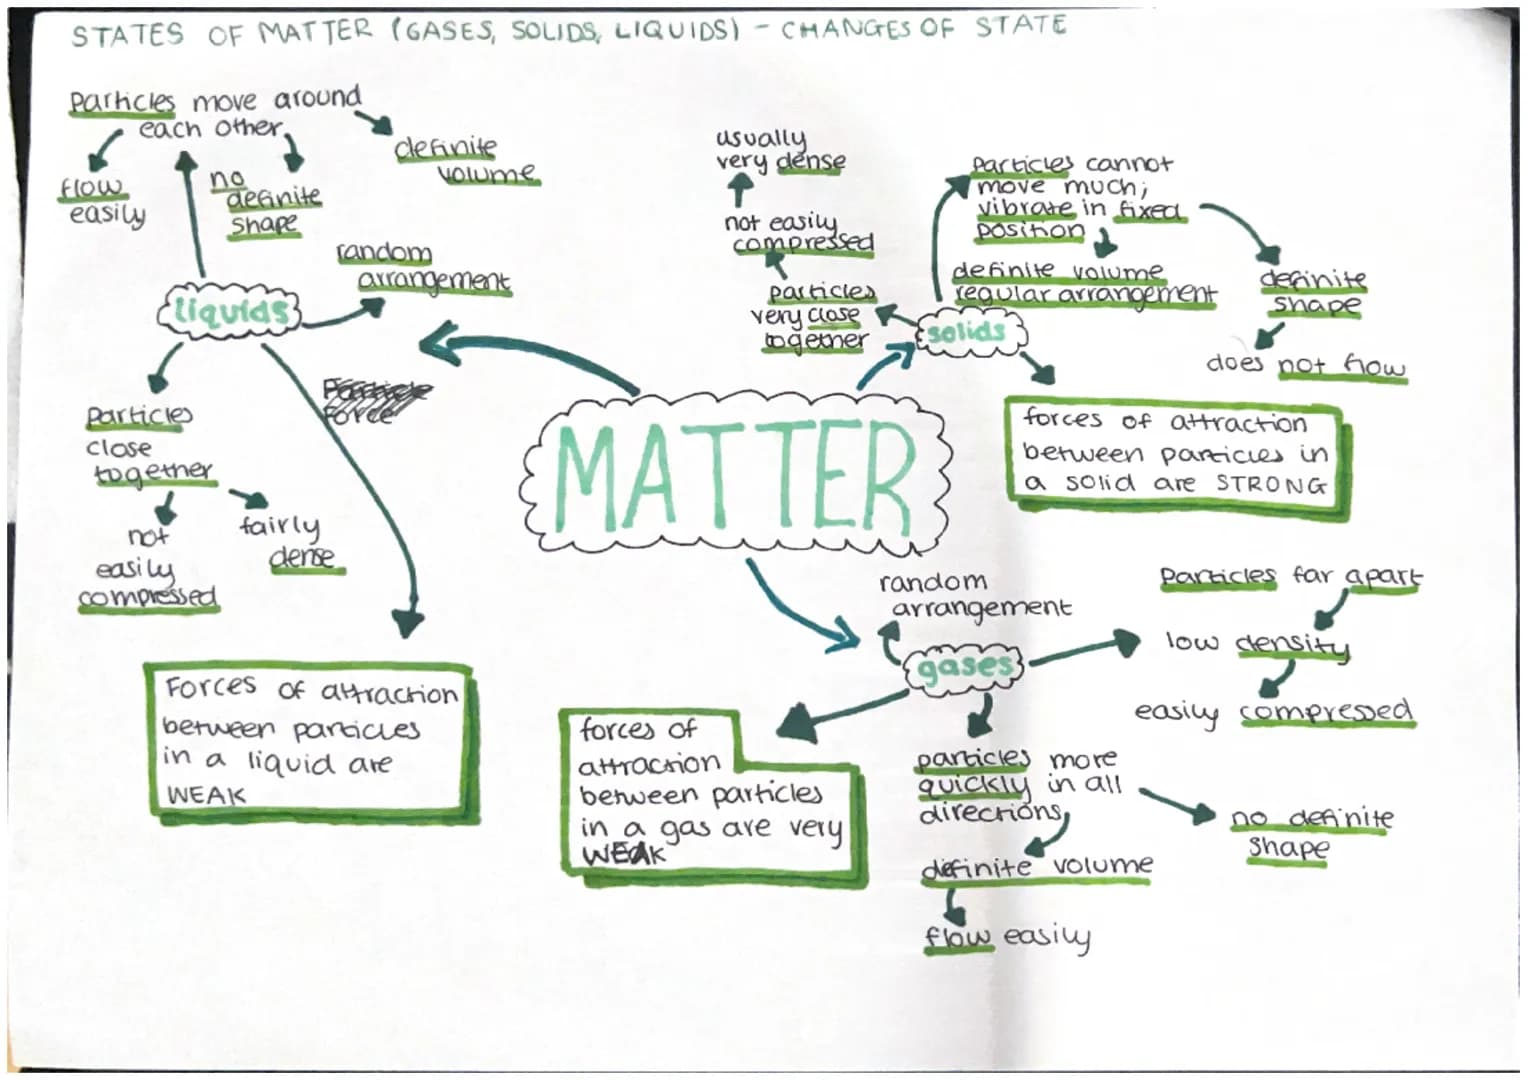 STATES OF MATTER (GASES, SOLIDS, LIQUIDS) - CHANGES OF STATE
Particles move around
each other
flow
easily
no
definite
shape
definite
volume
random
arrangement
liquids
Force
Particles
close
together
not
easily
compressed
fairly
dense
Forces of attraction
between particles
in a liquid are
WEAK
MATTER
usually
very dense
not easily
compressed
particles
very close
together
solids
Particles cannot
move much;
vibrate in fixed
position
definite volume
regular arrangement
definite
shape
does not flow
forces of attraction
between particles in
a solid are STRONG
random
arrangement
gases
Particles far apart
low density
easily compressed
forces of
attraction
between particles
in a gas are very
WEAK
particles more
quickly in all
directions,
definite volume
flow easily
no definite
shape